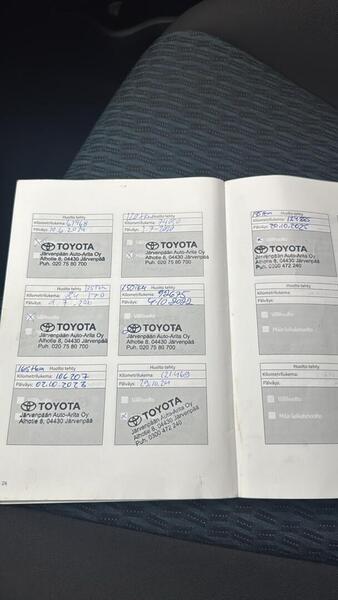 Huolto tehty
Kilometrilukema:
Päiväys:
TOYOTA
Järvenpään Auto-Arita Oy
Alhotie 8, 04430 Järvenpää
Puh. 020 75 80 700
Huolto tehty
Kilometrilukema:
Päiväys:
TOYOTA
Järvenpään Auto-Arita Oy
Alhotie 8, 04430 Järvenpää
Puh. 020 75 80 700
Huolto tehty
Kilometrilukema:
Päiväys: 20.10.2025
TOYOTA
Järvenpään Auto-Arita Oy
Alhotie 8, 04430 Järvenpää
Puh. 0300 472 240
Huolto tehty
Kilometrilukema:
Päiväys:
TOYOTA
Järvenpään Auto-Arita Oy
Alhotie 8, 04430 Järvenpää
Puh. 020 75 80 700
Huolto tehty
Kilometrilukema:
Päiväys:
TOYOTA
Järvenpään Auto-Arita Oy
Alhotie 8, 04430 Järvenpää
Puh. 020 75 80 700
Huolto tehty
Kilometrilukema:
Päiväys:
Välihuolto
Määräaikaishuolto
Huolto tehty
Kilometrilukema: 106207
Päiväys: 02.10.2023
TOYOTA
Järvenpään Auto-Arita Oy
Alhotie 8, 04430 Järvenpää
Puh. 020 75 80 700
Huolto tehty
Kilometrilukema: 121469
Päiväys: 29.10.24
TOYOTA
Järvenpään Auto-Arita Oy
Alhotie 8, 04430 Järvenpää
Puh. 0300 472 240
Huolto tehty
Kilometrilukema:
Päiväys:
Välihuolto
Määräaikaishuolto
24